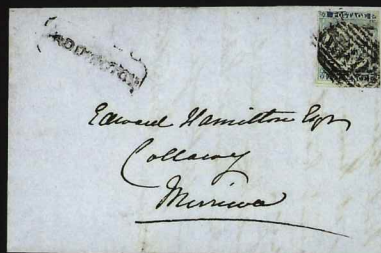 POSTAGE
Edward Hamilton Esqr
Collaroy
Merriwa